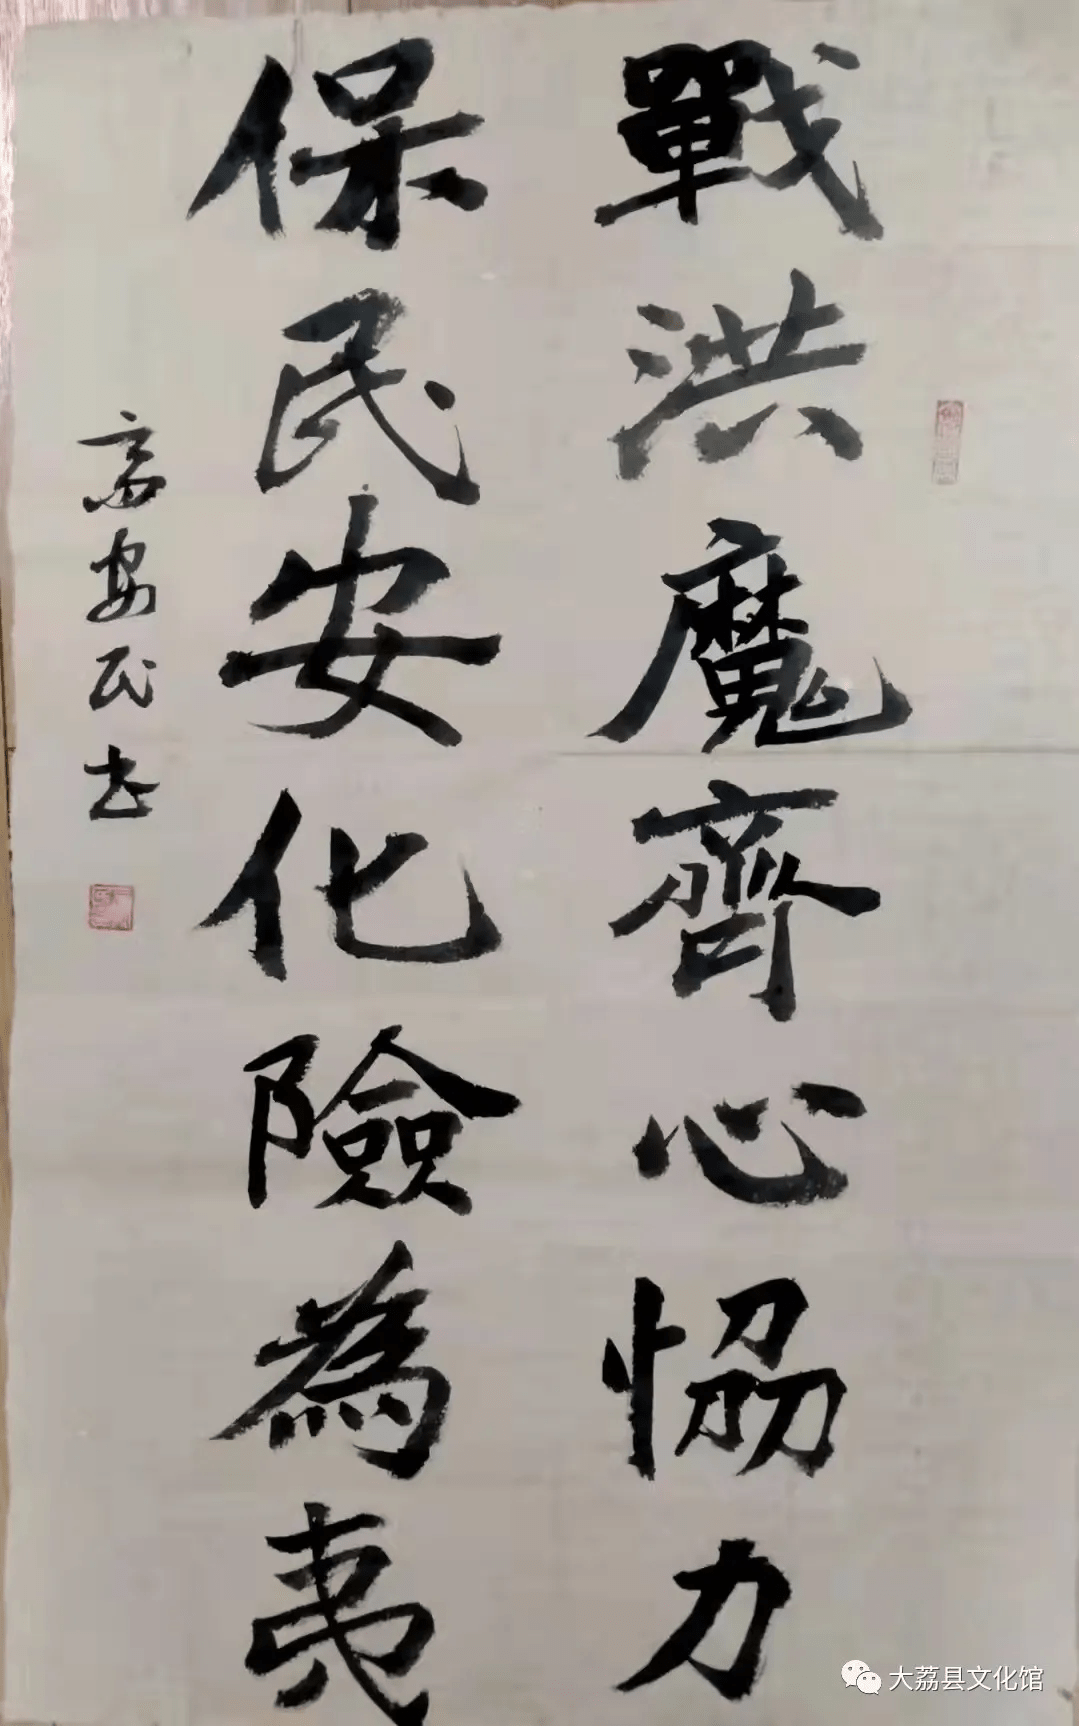 戰洪魔齊心恊力
保民安化險為夷
高安民书
大荔县文化馆